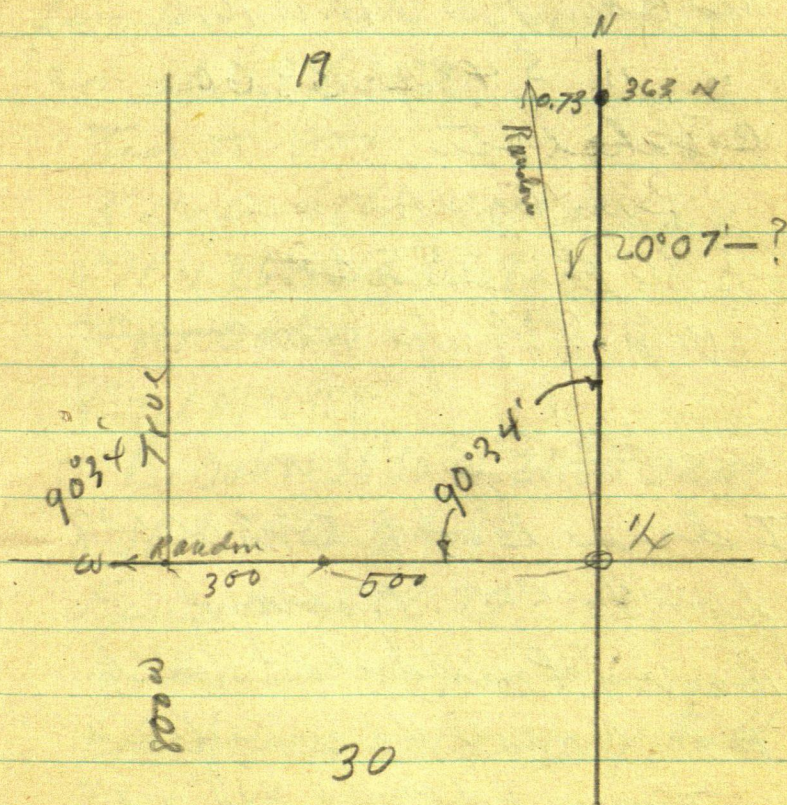 N
19
0.73 363 N
Random
20°07'—?
TRUE
90°34'
90°34'
1/4
W Random
300 500
800 W
30